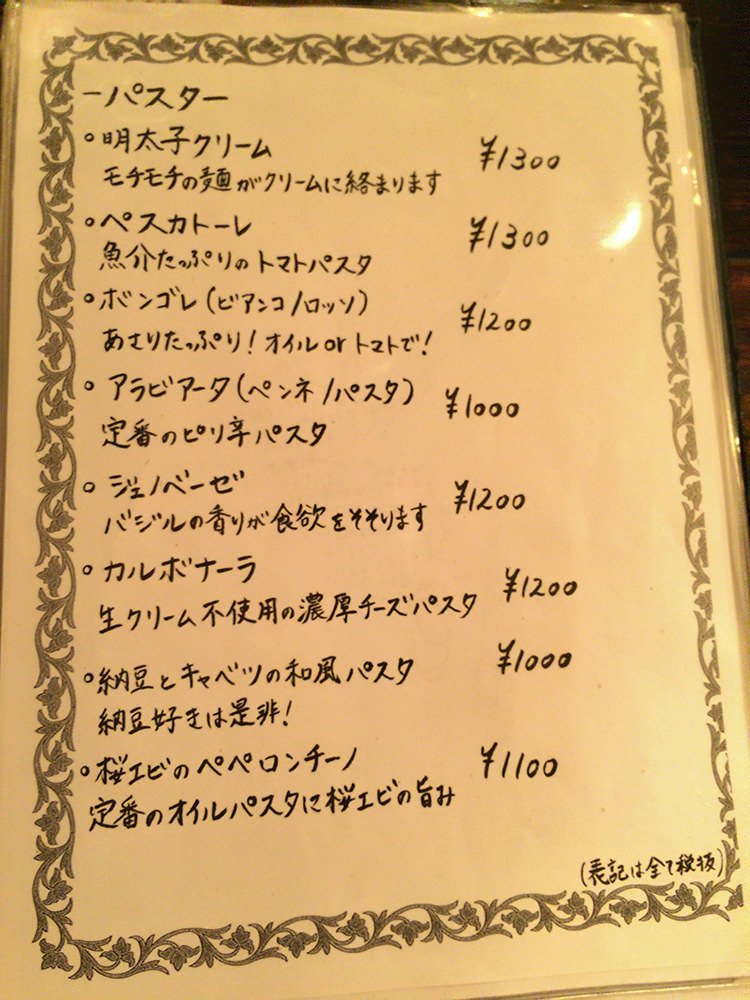 ーパスター
○明太子クリーム ¥1300
モチモチの麺がクリームに絡まります
○ペスカトーレ ¥1300
魚介たっぷりのトマトパスタ
○ボンゴレ(ビアンコ/ロッソ) ¥1200
あさりたっぷり!オイルorトマトで!
○アラビアータ(ペンネ/パスタ) ¥1000
定番のピリ辛パスタ
○ジェノベーゼ ¥1200
バジルの香りが食欲をそそります
○カルボナーラ ¥1200
生クリーム不使用の濃厚チーズパスタ
○納豆とキャベツの和風パスタ ¥1000
納豆好きは是非!
○桜エビのペペロンチーノ ¥1100
定番のオイルパスタに桜エビの旨み
(表記は全て税抜)